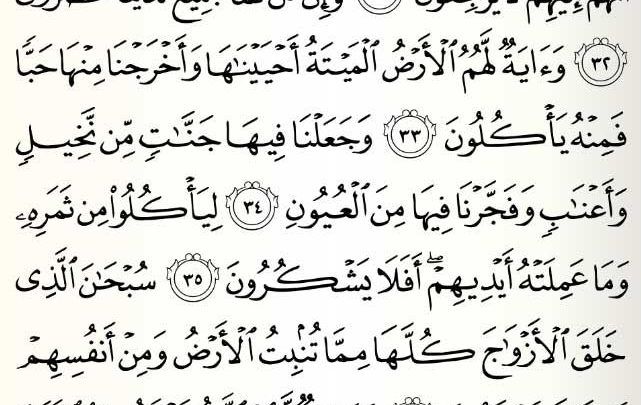 أَنَّهُمْ إِلَيْهِمْ لَا يَرْجِعُونَ
وَإِن كُلٌّ لَّمَّا جَمِيعٌ لَّدَيْنَا مُحْضَرُونَ
٣٢ وَءَايَةٌ لَّهُمُ ٱلْأَرْضُ ٱلْمَيْتَةُ أَحْيَيْنَٰهَا وَأَخْرَجْنَا مِنْهَا حَبًّا
فَمِنْهُ يَأْكُلُونَ ٣٣ وَجَعَلْنَا فِيهَا جَنَّٰتٍ مِّن نَّخِيلٍ
وَأَعْنَٰبٍ وَفَجَّرْنَا فِيهَا مِنَ ٱلْعُيُونِ ٣٤ لِيَأْكُلُوا۟ مِن ثَمَرِهِۦ
وَمَا عَمِلَتْهُ أَيْدِيهِمْ ۖ أَفَلَا يَشْكُرُونَ ٣٥ سُبْحَٰنَ ٱلَّذِى
خَلَقَ ٱلْأَزْوَٰجَ كُلَّهَا مِمَّا تُنۢبِتُ ٱلْأَرْضُ وَمِنْ أَنفُسِهِمْ